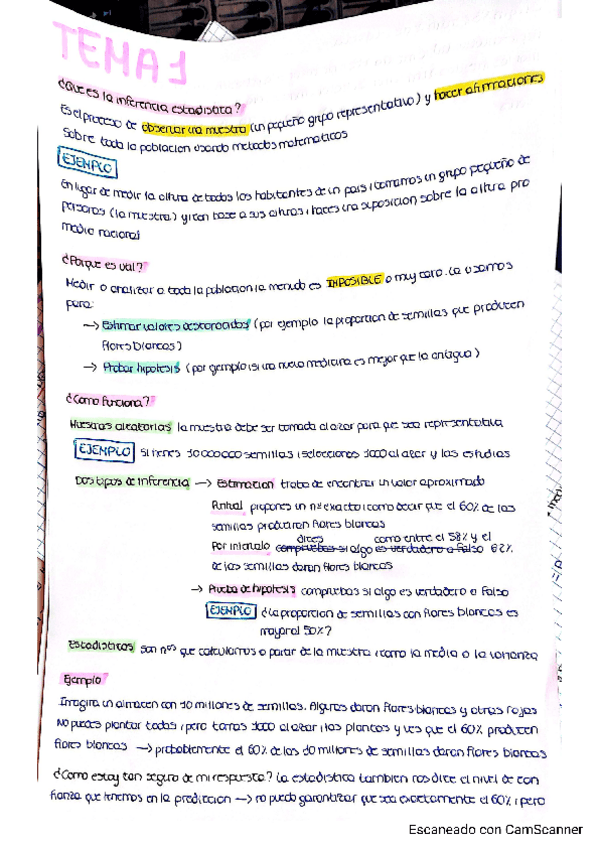 TEMA 1
¿Que es la inferencia estadistica?
Es el proceso de observar una muestra (un pequeño grupo representativo) y hacer afirmaciones
sobre toda la poblacion usando metodos matematicos
EJEMPLO
En lugar de medir la altura de todos los habitantes de un pais, tomamos un grupo pequeño de
personas (la muestra) y, en base a sus alturas, haces una suposicion sobre la altura pro
medio nacional
¿Porque es util?
Medir o analizar a toda la poblacion, a menudo es IMPOSIBLE o muy caro. La usamos
para:
→ Estimar valores desconocidos (por ejemplo la proporcion de semillas que producen
flores blancas)
→ Probar hipotesis (por ejemplo, si una nueva medicina es mejor que la antigua)
¿Como funciona?
Muestras aleatorias la muestra debe ser tomada al azar para que sea representativa
EJEMPLO si tienes 10000000 semillas, selecciones 1000 al azar y las estudias
Dos tipos de inferencia → Estimacion trata de encontrar un valor aproximado
Puntual propones un nº exacto, como decir que el 60% de las
semillas produciran flores blancas
dices como entre el 58% y el
Por intervalo compruebas si algo es verdadero o falso 62%
de las semillas daran flores blancas
→ Prueba de hipotesis compruebas si algo es verdadero o falso
EJEMPLO ¿la proporcion de semillas con flores blancas es
mayor al 50%?
Estadisticos son nºs que calculamos a partir de la muestra, como la media o la varianza
Ejemplo
Imagina un almacen con 10 millones de semillas. Algunas daran flores blancas y otras rojas
No puedes plantar todas, pero tomas 1000 al azar, las plantas y ves que el 60% producen
flores blancas → probablemente el 60% de las 10 millones de semillas daran flores blancas
¿Como estoy tan seguro de mi respuesta? La estadistica tambien nos dice el nivel de con
fianza que tenemos en la prediccion → no puedo garantizar que sea exactamente el 60%, pero
Escaneado con CamScanner